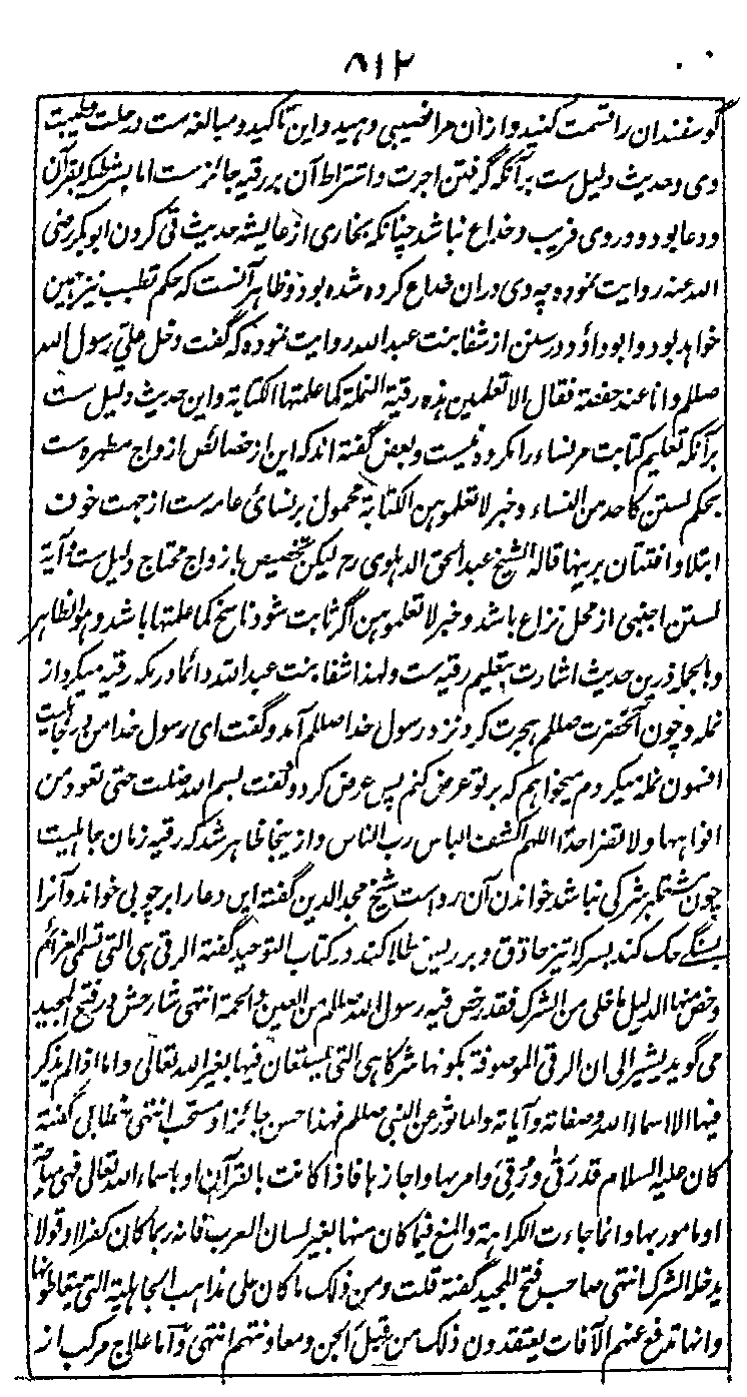 ۸۱۲
گوسفندان را قسمت کنید و ازان مرا نصیبی دهید و این تاکید و مبالغه ست در حلت و طیبت
وی و حدیث دلیل ست برآنکه گرفتن اجرت و اشتراط آن بر رقیه جائز ست اما بشرطیکه بقرآن
و دعا بود و دروی فریب و خداع نباشد چنانکه بخاری از عایشه حدیث قی کردن ابوبکر رضی
الله عنه روایت نموده چه وی دران خداع کرده شده بود و ظاهر آنست که حکم تطبب نیز همین
خواهد بود و ابوداؤد در سنن از شفا بنت عبدالله روایت نموده که گفت دخل علی رسول الله
صللم وانا عند حفصة فقال الا تعلمین هذه رقیة النملة کما علمتها الکتابة و این حدیث دلیل ست
برآنکه تعلیم کتابت مر نساء را مکروه نیست و بعض گفته اند که این از خصائص ازواج مطهره ست
بحکم لستن کاحد من النساء و خبر لا تعلموهن الکتابة محمول بر نسای عامه ست از جهت خوف
ابتلا و افتتان بریها قاله الشیخ عبدالحق الدهلوی رح لیکن تخصیص بازواج محتاج دلیل ست و آیة
لستن اجنبی از محل نزاع باشد و خبر لا تعلموهن اگر ثابت شود ناسخ کما علمتها باشد و هو الظاهر
و بالجمله درین حدیث اشارت بتعلیم رقیه ست ولهذا شفا بنت عبدالله دائما در مکه رقیه میکرد از
نمله و چون آنحضرت صللم هجرت کرد نزد رسول خدا صللم آمد و گفت ای رسول خدا من در جاهلیت
افسون نمله میکردم میخواهم که بر تو عرض کنم پس عرض کرد و گفت بسم الله ضلت حتی تعود من
افواهها ولا تضر احدا اللهم اکشف الباس رب الناس و ازینجا ظاهر شد که رقیه زمان جاهلیت
چون مشتمل بر شرکی نباشد خواندن آن رواست شیخ مجدالدین گفته این دعا را بر چوبی خواند و آنرا
بسنگے حک کند بسرکه تیز حاذق و بر ریش طلا کند در کتاب التوحید گفته الرقی هی التی تسمی العزائم
وخص منها الدلیل ما خلی من الشرک فقد رخص فیه رسول الله صللم من العین والحمة انتهی شارحش در فتح المجید
می گوید یشیر الی ان الرقی الموصوفة بکونها شرکا هی التی یستعان فیها بغیر الله تعالی واما اذا لم یذکر
فیها الا اسماء الله وصفاته وآیاته والماثور عن النبی صللم فهذا حسن جائز او مستحب انتهی خطابی گفته
کان علیه السلام قد رَقی ورُقِیَ وامر بها واجازها فاذا کانت بالقرآن او باسماء الله تعالی فهی مباحة
او مامور بها وانما جاءت الکراهة والمنع فیما کان منها بغیر لسان العرب فانه ربما کان کفرا او قولا
یدخله الشرک انتهی صاحب فتح المجید گفته قلت ومن ذلک ما کان علی مذاهب الجاهلیة التی یتعاطونها
وانها تدفع عنهم الآفات یعتقدون ذلک من قبل الجن ومعاونتهم انتهی و اما علاج مرکب از